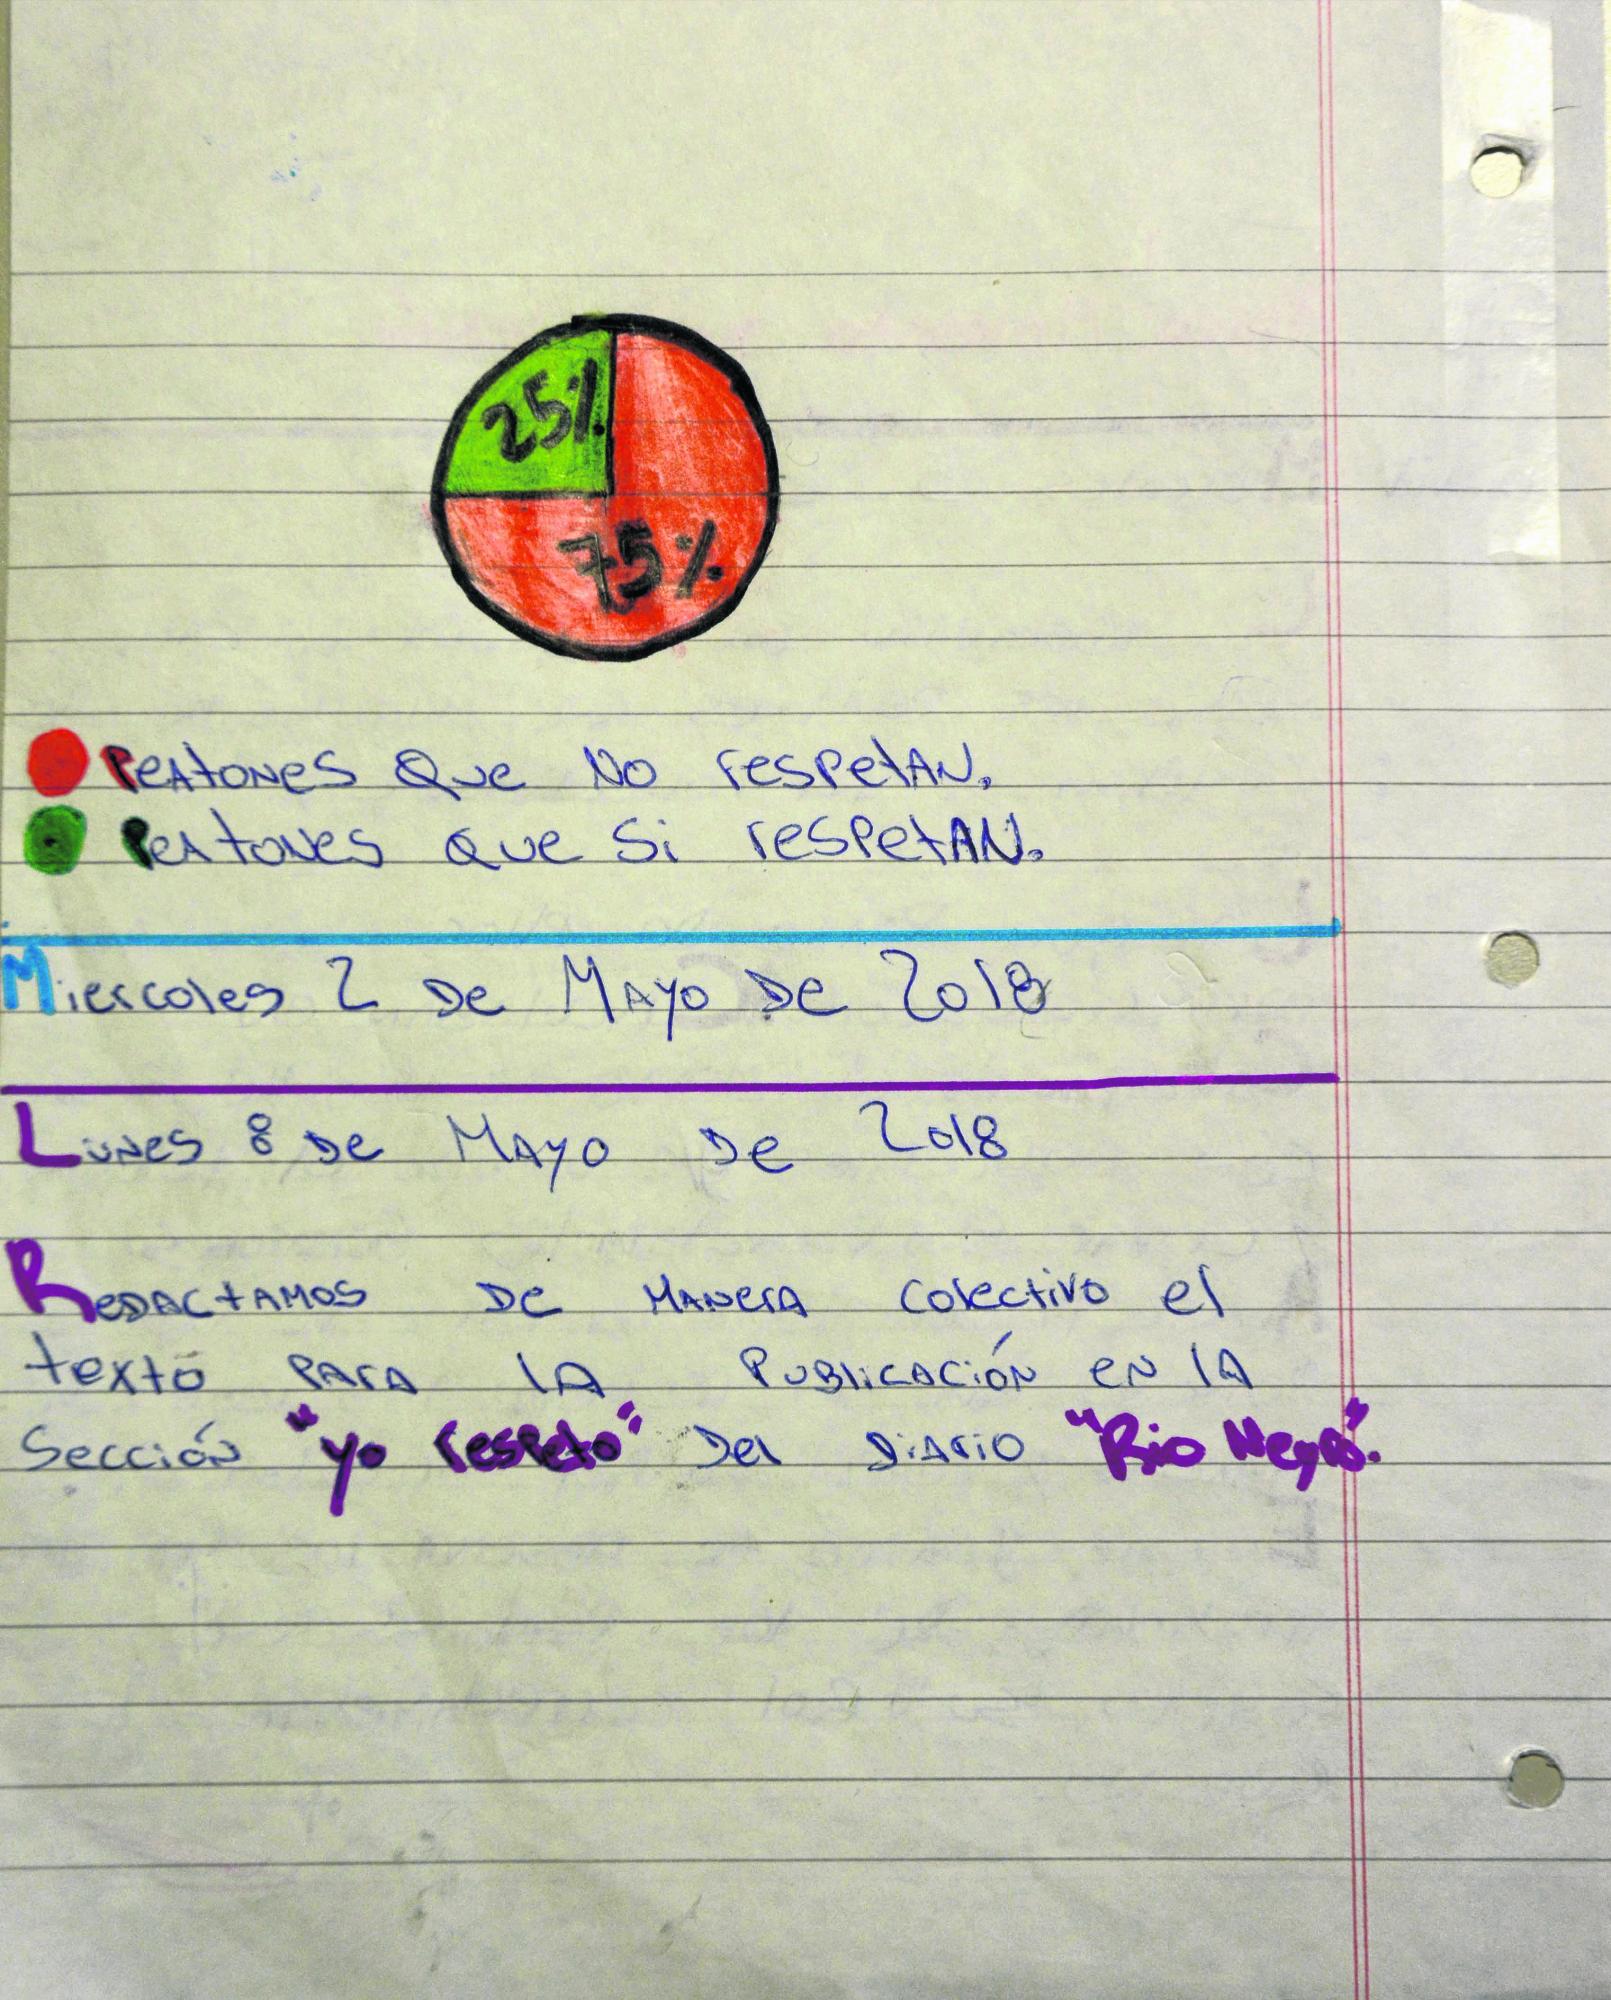 25%
75%
Peatones que no respetan.
Peatones que si respetan.
Miercoles 2 de Mayo de 2018
Lunes 8 de Mayo de 2018
Redactamos de manera colectivo el
texto para la publicación en la
sección "yo respeto" del diario "Rio Negro".